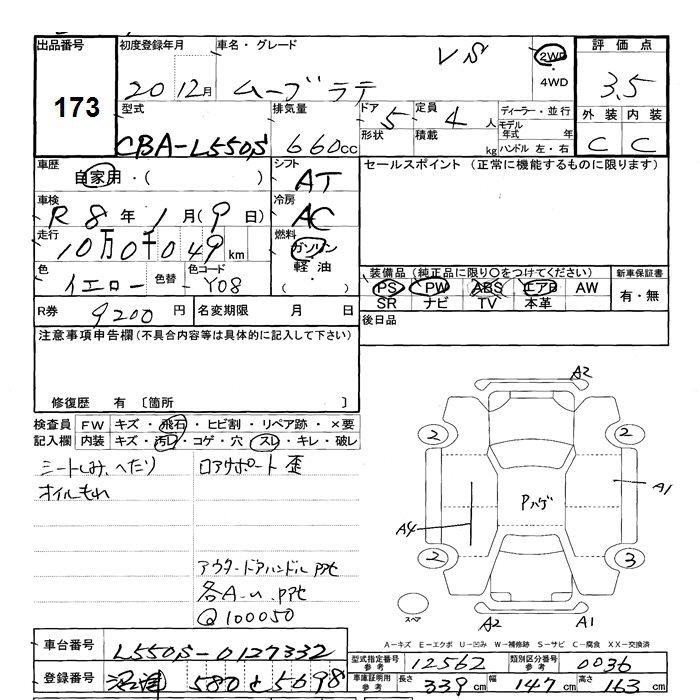 出品番号 初度登録年月 車名・グレード 評価点
173
20 12月 ムーブラテ VS 2WD 4WD 3.5
型式 排気量 ドア 定員 ディーラー・並行 外装 内装
CBA-L550S 660cc 5 4人 モデル年式 年 C C
形状 積載 kg ハンドル 左・右
車歴 シフト セールスポイント (正常に機能するものに限ります)
自家用・( ) AT
車検 冷房
R8年1月(9日) AC
走行 燃料
10万0千049km ガソリン
色 色替 色コード 軽油・( ) 装備品 (純正品に限り○をつけてください) 新車保証書
イエロー Y08 PS PW ABS エアB AW 有・無
SR ナビ TV 本革
R券 9200円 名変期限 月 日 後日品
注意事項申告欄(不具合内容等は具体的に記入して下さい)
修復歴 有 〔箇所 〕
検査員 FW キズ・飛石・ヒビ割・リペア跡・×要
記入欄 内装 キズ・汚れ・コゲ・穴・スレ・キレ・破レ
シートしみ、へたり ロアサポート歪
オイルもれ
アウタードアハンドルPPセ
各A-u.PPセ
@100050
A2
2 2
A1
Pハゲ
A4
2 3
スペア
A2 A1
A-キズ E-エクボ U-凹み W-補修跡 S-サビ C-腐食 XX-交換済
車台番号 L550S-0127332 型式指定番号 参考 12562 類別区分番号 参考 0036
登録番号 580 と 5698 車庫証明用 参考 長さ 339cm 幅 147cm 高さ 163cm